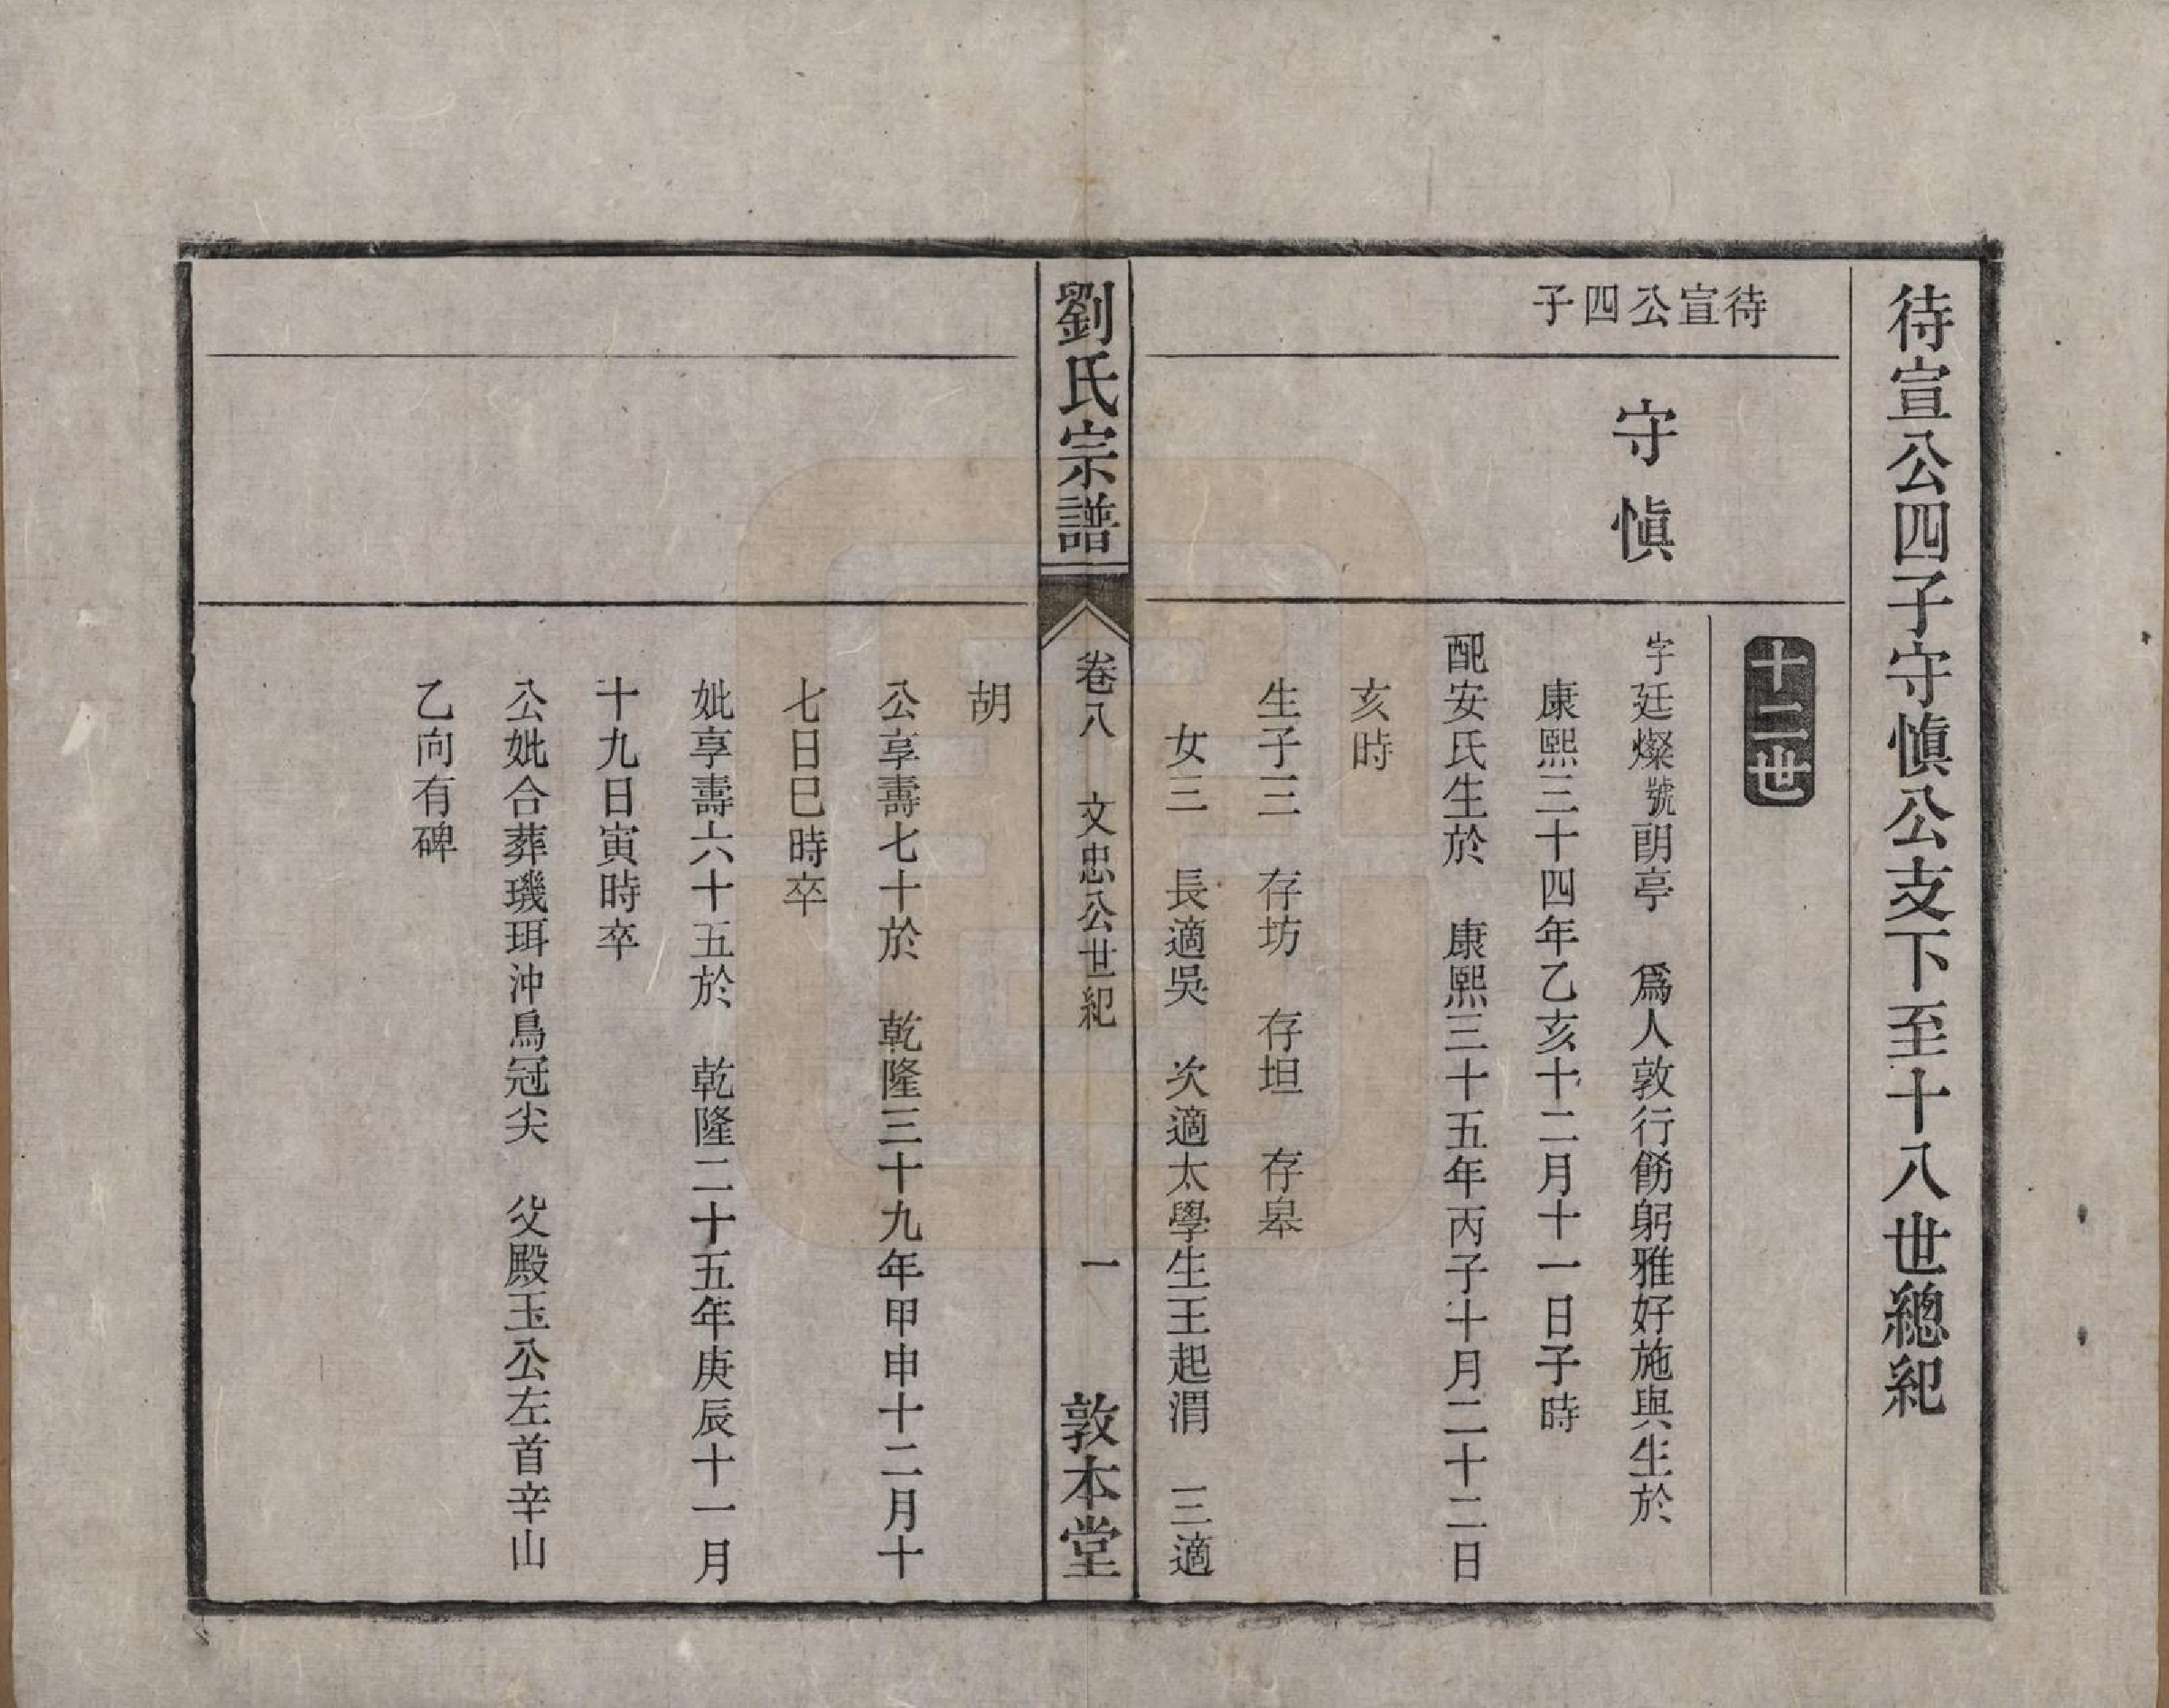 待宣公四子守愼公支下至十八世總紀
待宣公四子
守愼
十二世
字廷燦號朗亭　爲人敦行飭躬雅好施與生於
康熙三十四年乙亥十二月十一日子時
配安氏生於　康熙三十五年丙子十月二十二日
亥時
生子三　存坊　存坦　存皋
女三　長適吳　次適太學生王起渭　三適
劉氏宗譜
卷八　文忠公世紀
一
敦本堂
胡
公享壽七十於　乾隆三十九年甲申十二月十
七日巳時卒
妣享壽六十五於　乾隆二十五年庚辰十一月
十九日寅時卒
公妣合葬璣珥沖鳥冠尖　父殿玉公左首辛山
乙向有碑